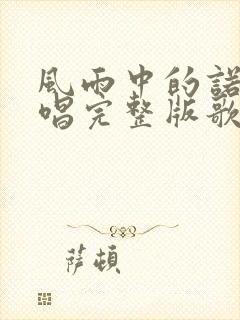 風雨中的諾
唱完整版歌
薩頓